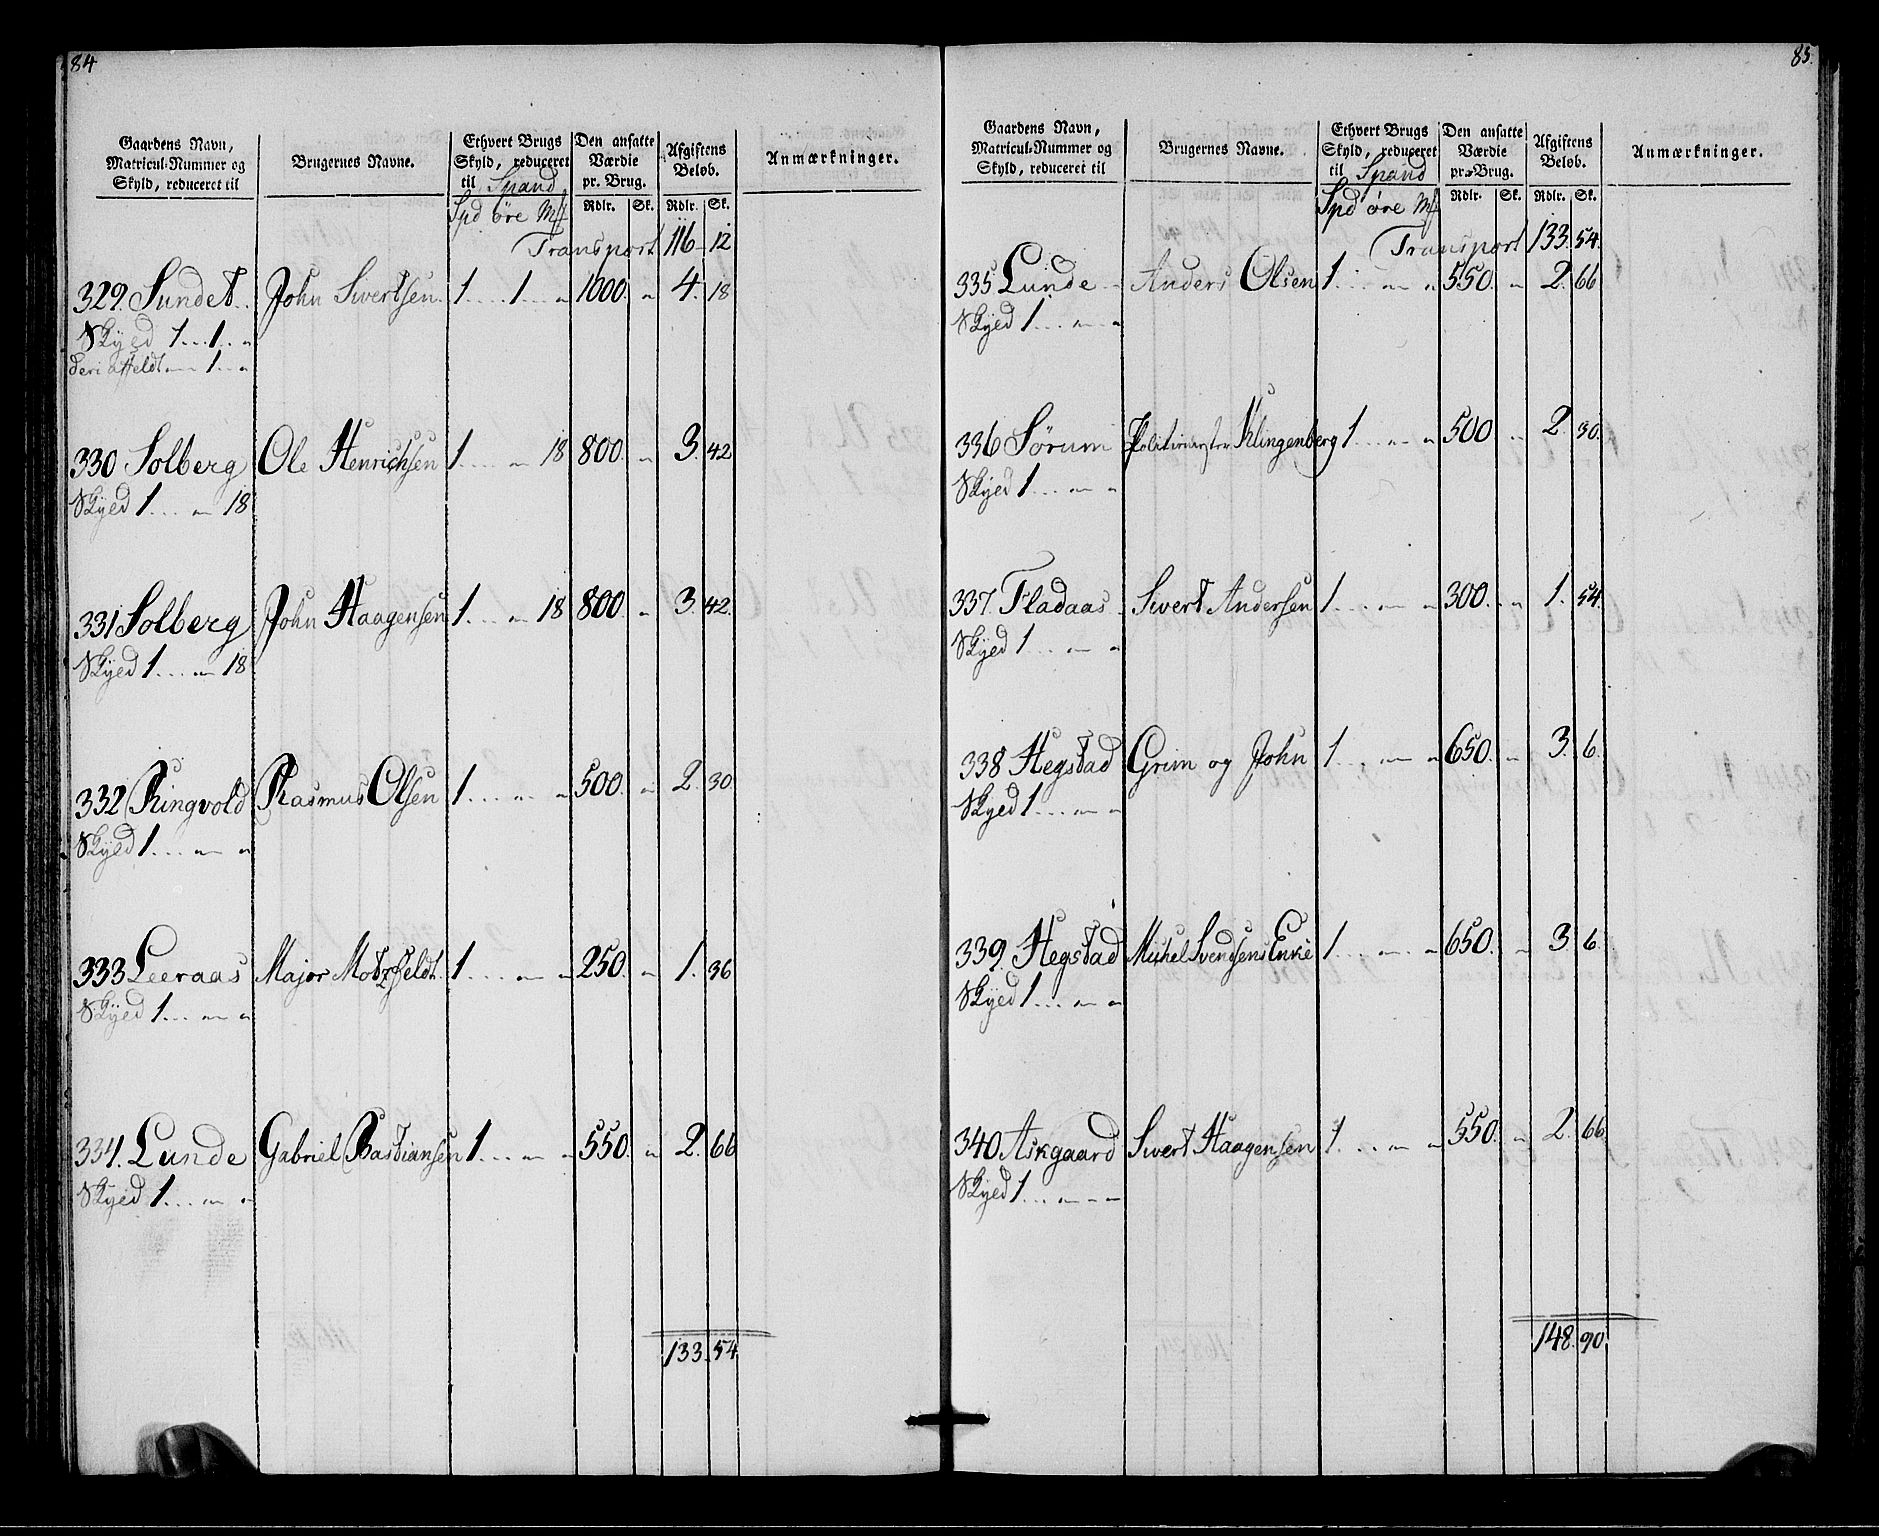 84
Gaardens Navn, Matricul-Nummer og Skyld, reduceret til | Brugernes Navne. | Ethvert Brugs Skyld, reduceret til Spand Spd øre Mk | Den ansatte Værdie pr. Brug. Rdlr. Sk. | Afgiftens Beløb. Rdlr. Sk. | Anmærkninger.
Transport 116 12
329. Sundet. John Sivertsen 1 1 " 1000. " 4. 18
Skyld 1 1 "
1 "
330 Solberg Ole Henrichsen 1 " 18 800. " 3. 42
Skyld 1 " 18
331 Solberg John Haagensen 1 " 18 800 " 3. 42.
Skyld 1 " 18
332 Ringvold Rasmus Olsen 1 " " 500. " 2. 30
Skyld 1 " "
333 Leeraas Major Motzfeldt 1 " " 250. " 1. 36
Skyld 1 " "
334. Lunde Gabriel Bastiansen 1 " " 550. " 2. 66
Skyld 1 " "
133. 54
85.
Gaardens Navn, Matricul-Nummer og Skyld, reduceret til | Brugernes Navne. | Ethvert Brugs Skyld, reduceret til Spand Spd øre Mk | Den ansatte Værdie pr. Brug. Rdlr. Sk. | Afgiftens Beløb. Rdlr. Sk. | Anmærkninger.
Transport 133. 54.
335 Lunde Anders Olsen 1 " " 550. " 2. 66
Skyld 1 " "
336 Sørum Politimester Klingenberg 1 " " 500 " 2. 30.
Skyld 1 " "
337. Fladaas Sivert Andersen 1 " " 300. " 1. 54.
Skyld 1 " "
338 Hegstad Grim og John 1 " " 650. " 3. 6.
Skyld 1 " "
339. Hegstad Michel Svendsens Enke 1 " " 650. " 3. 6.
Skyld 1 " "
340 Askgaard Sivert Haagensen 1 " " 550. " 2. 66
Skyld 1 " "
148. 90